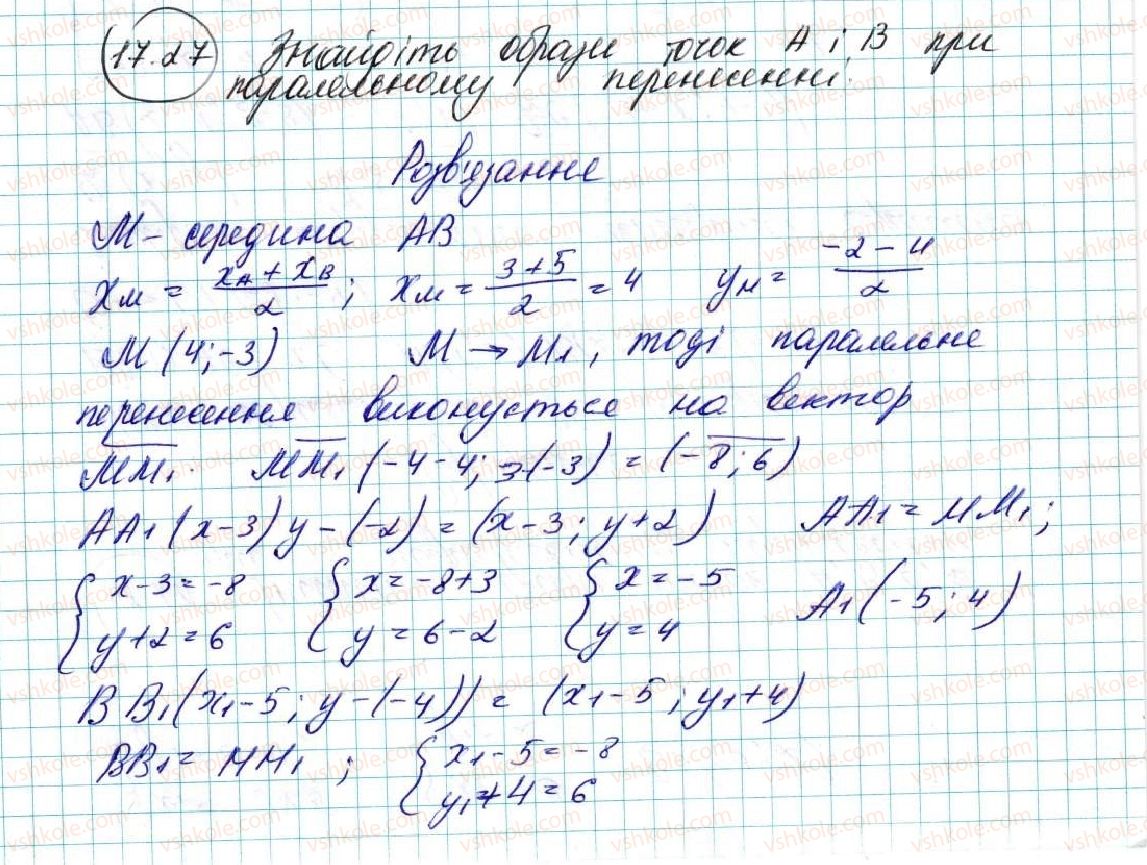 17.27 Знайдіть образи точок A і B при
паралельному перенесенні.
Розв'язання
M - середина AB
xм = (xA + xB)/2 ; xм = (3+5)/2 = 4 yм = (-2-4)/2
M (4;-3) M → M1, тоді паралельне
перенесення виконується на вектор
MM1. MM1 (-4-4; 3-(-3)) = (-8; 6)
AA1 (x-3) y-(-2) = (x-3; y+2) AA1 = MM1;
{x-3=-8 {x=-8+3 {x=-5
{y+2=6 {y=6-2 {y=4 A1 (-5; 4)
BB1 (x1-5; y-(-4)) = (x1-5; y1+4)
BB1 = MM1 ; {x1-5=-8
{y1+4=6
vshkole.com